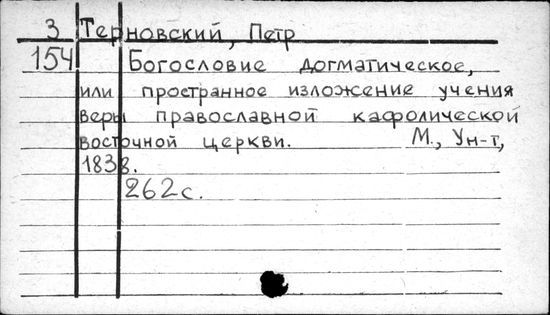 3 Терновский, Петр
154 Богословие догматическое,
или пространное изложение учения
веры православной кафолической
восточной церкви. М., Ун-т,
1838.
262 с.